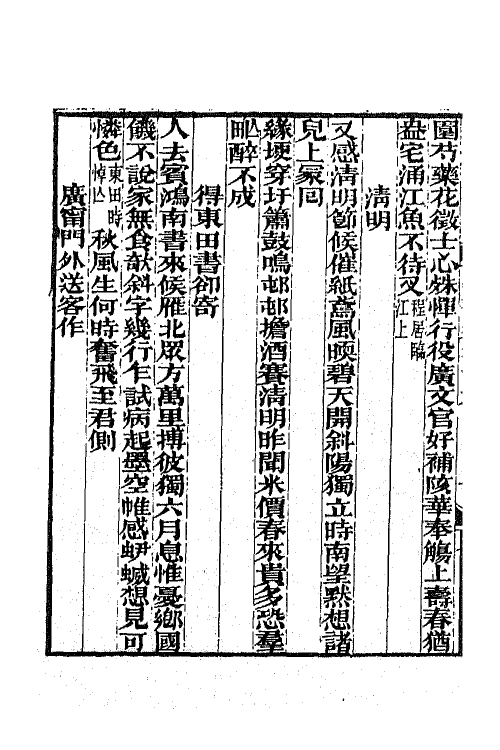 圍芍藥花徵士心殊憚行役廣文官好補陔華奉觴上壽春猶
盎宅涌江魚不待叉程居臨江上
清明
又感清明節候催紙鳶風暖碧天開斜陽獨立時南望默想諸
兒上冢回
緣埂穿圩簫鼓鳴邨邨擔酒賽淸明昨聞米價春來貴多恐羣
甿醉不成
得東田書卻寄
人去賓鴻南書來候雁北眾方萬里摶彼獨六月息惟憂鄉國
饑不說家無食敧斜字幾行乍試病起墨空帷感蛜蝛想見可
憐色東田時悼亾秋風生何時奮飛至君側
廣甯門外送客作